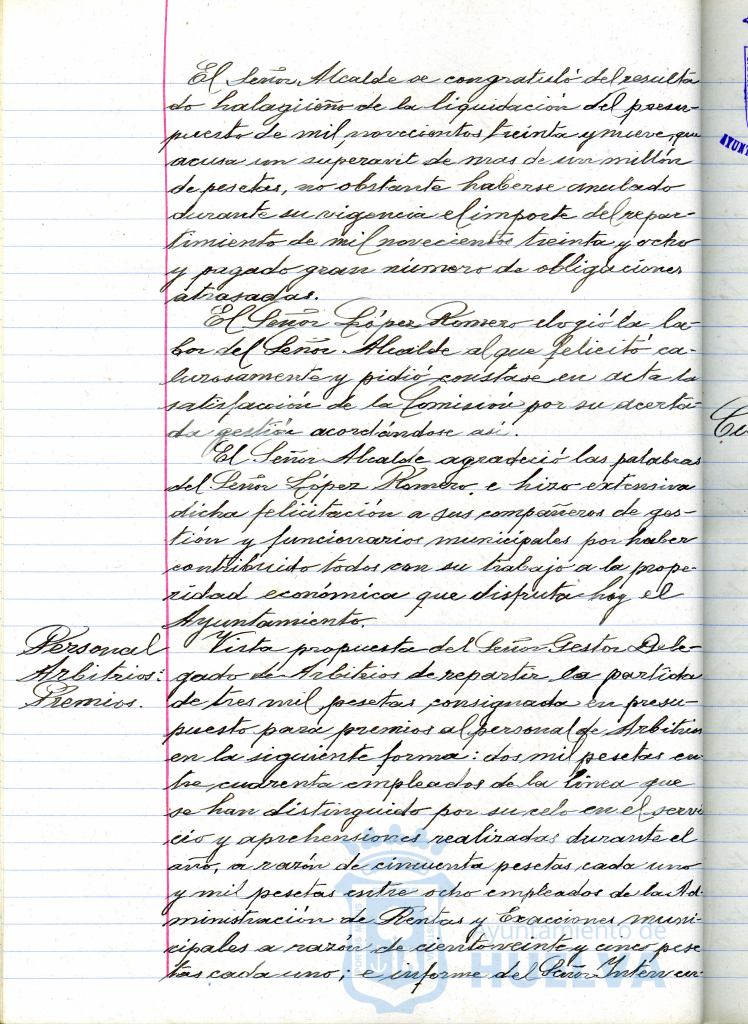 El Señor Alcalde se congratuló del resulta
do halagüeño de la liquidación del presu-
puesto de mil novecientos treinta y nueve, que
acusa un superavit de mas de un millón
de pesetas, no obstante haberse anulado
durante su vigencia el importe del repar-
timiento de mil novecientos treinta y ocho
y pagado gran número de obligaciones
atrasadas.
El Señor López Romero elogió la la-
bor del Señor Alcalde al que felicitó ca-
lurosamente y pidió constase en acta la
satisfacción de la Comisión por su acerta-
da gestión acordándose asi.
El Señor Alcalde agradeció las palabras
del Señor López Romero, e hizo extensiva
dicha felicitación a sus compañeros de ges-
tión y funcionarios municipales por haber
contribuido todos con su trabajo a la prope-
ridad económica que disfruta hoy el
Ayuntamiento.
Personal
Arbitrios:
Premios.
Vista propuesta del Señor Gestor Dele-
gado de Arbitrios de repartir la partida
de tres mil pesetas consignada en presu-
puesto para premios al personal de Arbitrios
en la siguiente forma: dos mil pesetas en-
tre cuarenta empleados de la línea que
se han distinguido por su celo en el servi
cio y aprehensiones realizadas durante el
año, a razón de cincuenta pesetas cada uno
y mil pesetas entre ocho empleados de la Ad-
ministración de Rentas y Exacciones muni-
cipales a razón de ciento veinte y cinco pese
tas cada uno; e informe del Señor Interven-
Ayuntamiento de
HUELVA